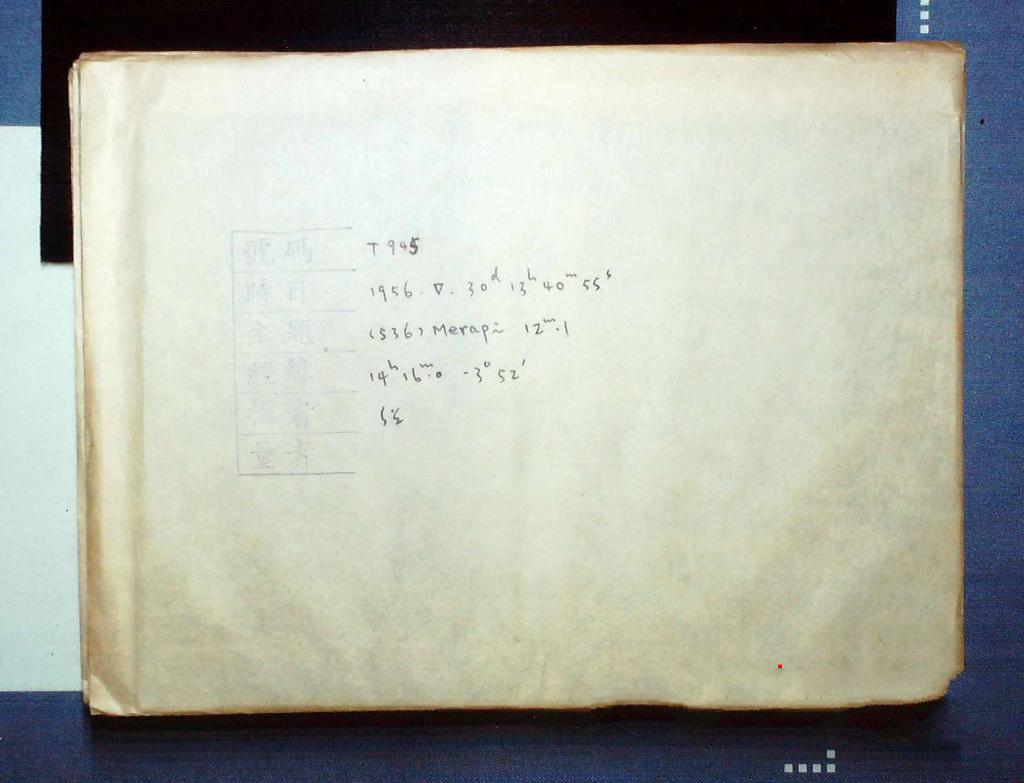 號碼 T 945
時日 1956. V. 30ᵈ 13ʰ 40ᵐ 55ˢ
主題 (536) Merapi 12ᵐ.1
經緯 14ʰ 16ᵐ.0 -3° 52′
攝者
量者